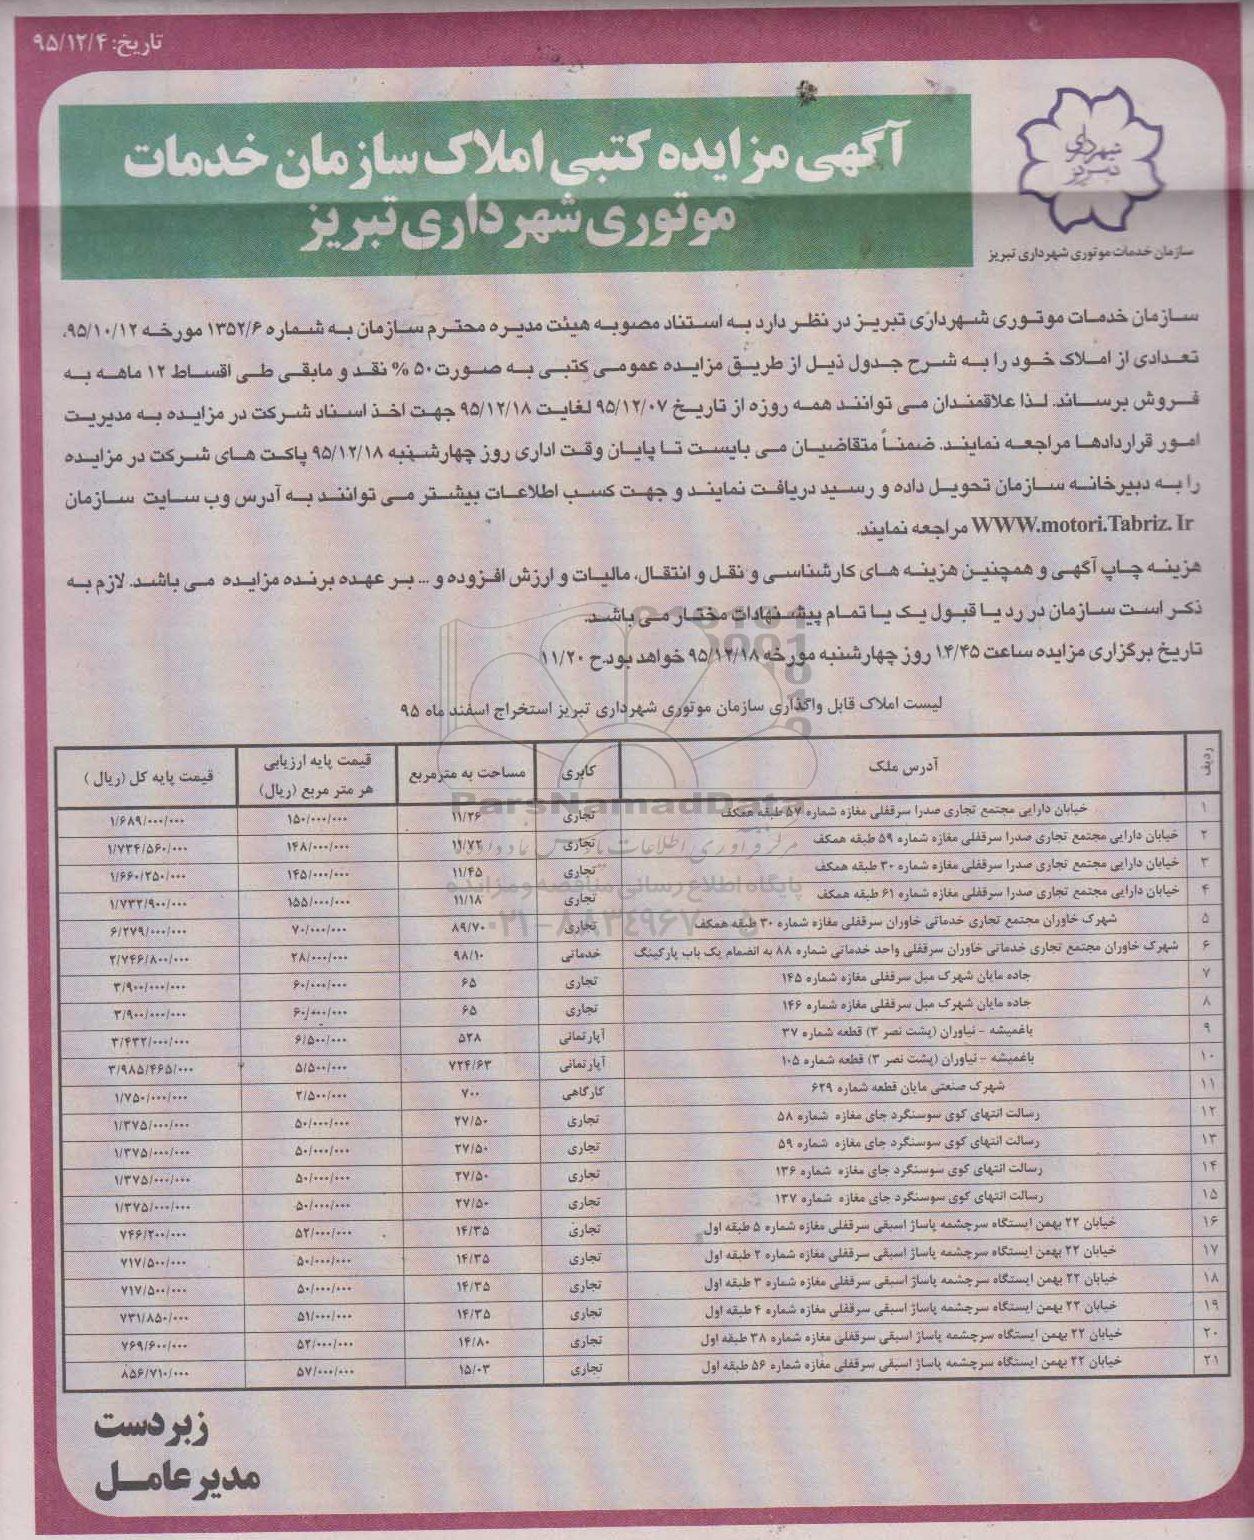 تاریخ: ۹۵/۱۲/۴
آگهی مزایده کتبی املاک سازمان خدمات
موتوری شهرداری تبریز
شهرداری
تبریز
سازمان خدمات موتوری شهرداری تبریز
سازمان خدمات موتوری شهرداری تبریز در نظر دارد به استناد مصوبه هیئت مدیره محترم سازمان به شماره ۱۳۵۲/۶ مورخه ۹۵/۱۰/۱۲،
تعدادی از املاک خود را به شرح جدول ذیل از طریق مزایده عمومی کتبی به صورت ۵۰ % نقد و مابقی طی اقساط ۱۲ ماهه به
فروش برساند. لذا علاقمندان می توانند همه روزه از تاریخ ۹۵/۱۲/۰۷ لغایت ۹۵/۱۲/۱۸ جهت اخذ اسناد شرکت در مزایده به مدیریت
امور قراردادها مراجعه نمایند. ضمناً متقاضیان می بایست تا پایان وقت اداری روز چهارشنبه ۹۵/۱۲/۱۸ پاکت های شرکت در مزایده
را به دبیرخانه سازمان تحویل داده و رسید دریافت نمایند و جهت کسب اطلاعات بیشتر می توانند به آدرس وب سایت سازمان
WWW.motori.Tabriz.Ir مراجعه نمایند.
هزینه چاپ آگهی و همچنین هزینه های کارشناسی و نقل و انتقال، مالیات و ارزش افزوده و ... بر عهده برنده مزایده می باشد. لازم به
ذکر است سازمان در رد یا قبول یک یا تمام پیشنهادات مختار می باشد.
تاریخ برگزاری مزایده ساعت ۱۴/۴۵ روز چهارشنبه مورخه ۹۵/۱۲/۱۸ خواهد بود.ح ۱۱/۲۰
لیست املاک قابل واگذاری سازمان موتوری شهرداری تبریز استخراج اسفند ماه ۹۵
ردیف آدرس ملک کابری مساحت به مترمربع قیمت پایه ارزیابی هر متر مربع (ریال) قیمت پایه کل (ریال )
۱ خیابان دارایی مجتمع تجاری صدرا سرقفلی مغازه شماره ۵۷ طبقه همکف تجاری ۱۱/۲۶ ۱۵۰/۰۰۰/۰۰۰ ۱/۶۸۹/۰۰۰/۰۰۰
۲ خیابان دارایی مجتمع تجاری صدرا سرقفلی مغازه شماره ۵۹ طبقه همکف تجاری ۱۱/۷۲ ۱۴۸/۰۰۰/۰۰۰ ۱/۷۳۴/۵۶۰/۰۰۰
۳ خیابان دارایی مجتمع تجاری صدرا سرقفلی مغازه شماره ۳۰ طبقه همکف تجاری ۱۱/۴۵ ۱۴۵/۰۰۰/۰۰۰ ۱/۶۶۰/۲۵۰/۰۰۰
۴ خیابان دارایی مجتمع تجاری صدرا سرقفلی مغازه شماره ۶۱ طبقه همکف تجاری ۱۱/۱۸ ۱۵۵/۰۰۰/۰۰۰ ۱/۷۳۲/۹۰۰/۰۰۰
۵ شهرک خاوران مجتمع تجاری خدماتی خاوران سرقفلی مغازه شماره ۳۰ طبقه همکف تجاری ۸۹/۷۰ ۷۰/۰۰۰/۰۰۰ ۶/۲۷۹/۰۰۰/۰۰۰
۶ شهرک خاوران مجتمع تجاری خدماتی خاوران سرقفلی واحد خدماتی شماره ۸۸ به انضمام یک باب پارکینگ خدماتی ۹۸/۱۰ ۲۸/۰۰۰/۰۰۰ ۲/۷۴۶/۸۰۰/۰۰۰
۷ جاده مایان شهرک مبل سرقفلی مغازه شماره ۱۴۵ تجاری ۶۵ ۶۰/۰۰۰/۰۰۰ ۳/۹۰۰/۰۰۰/۰۰۰
۸ جاده مایان شهرک مبل سرقفلی مغازه شماره ۱۴۶ تجاری ۶۵ ۶۰/۰۰۰/۰۰۰ ۳/۹۰۰/۰۰۰/۰۰۰
۹ باغمیشه - نیاوران (پشت نصر ۳) قطعه شماره ۳۷ آپارتمانی ۵۲۸ ۶/۵۰۰/۰۰۰ ۳/۴۳۲/۰۰۰/۰۰۰
۱۰ باغمیشه - نیاوران (پشت نصر ۳) قطعه شماره ۱۰۵ آپارتمانی ۷۲۴/۶۳ ۵/۵۰۰/۰۰۰ ۳/۹۸۵/۴۶۵/۰۰۰
۱۱ شهرک صنعتی مایان قطعه شماره ۶۲۹ کارگاهی ۷۰۰ ۲/۵۰۰/۰۰۰ ۱/۷۵۰/۰۰۰/۰۰۰
۱۲ رسالت انتهای کوی سوسنگرد جای مغازه شماره ۵۸ تجاری ۲۷/۵۰ ۵۰/۰۰۰/۰۰۰ ۱/۳۷۵/۰۰۰/۰۰۰
۱۳ رسالت انتهای کوی سوسنگرد جای مغازه شماره ۵۹ تجاری ۲۷/۵۰ ۵۰/۰۰۰/۰۰۰ ۱/۳۷۵/۰۰۰/۰۰۰
۱۴ رسالت انتهای کوی سوسنگرد جای مغازه شماره ۱۳۶ تجاری ۲۷/۵۰ ۵۰/۰۰۰/۰۰۰ ۱/۳۷۵/۰۰۰/۰۰۰
۱۵ رسالت انتهای کوی سوسنگرد جای مغازه شماره ۱۳۷ تجاری ۲۷/۵۰ ۵۰/۰۰۰/۰۰۰ ۱/۳۷۵/۰۰۰/۰۰۰
۱۶ خیابان ۲۲ بهمن ایستگاه سرچشمه پاساژ اسبقی سرقفلی مغازه شماره ۵ طبقه اول تجاری ۱۴/۳۵ ۵۲/۰۰۰/۰۰۰ ۷۴۶/۲۰۰/۰۰۰
۱۷ خیابان ۲۲ بهمن ایستگاه سرچشمه پاساژ اسبقی سرقفلی مغازه شماره ۲ طبقه اول تجاری ۱۴/۳۵ ۵۰/۰۰۰/۰۰۰ ۷۱۷/۵۰۰/۰۰۰
۱۸ خیابان ۲۲ بهمن ایستگاه سرچشمه پاساژ اسبقی سرقفلی مغازه شماره ۳ طبقه اول تجاری ۱۴/۳۵ ۵۰/۰۰۰/۰۰۰ ۷۱۷/۵۰۰/۰۰۰
۱۹ خیابان ۲۲ بهمن ایستگاه سرچشمه پاساژ اسبقی سرقفلی مغازه شماره ۴ طبقه اول تجاری ۱۴/۳۵ ۵۱/۰۰۰/۰۰۰ ۷۳۱/۸۵۰/۰۰۰
۲۰ خیابان ۲۲ بهمن ایستگاه سرچشمه پاساژ اسبقی سرقفلی مغازه شماره ۳۸ طبقه اول تجاری ۱۴/۸۰ ۵۲/۰۰۰/۰۰۰ ۷۶۹/۶۰۰/۰۰۰
۲۱ خیابان ۲۲ بهمن ایستگاه سرچشمه پاساژ اسبقی سرقفلی مغازه شماره ۵۶ طبقه اول تجاری ۱۵/۰۳ ۵۷/۰۰۰/۰۰۰ ۸۵۶/۷۱۰/۰۰۰
ParsNamadData
پایگاه اطلاع رسانی مناقصه و مزایده
۰۲۱-۸۸۳۴۹۶۷۰-۵
زبردست
مدیرعامل